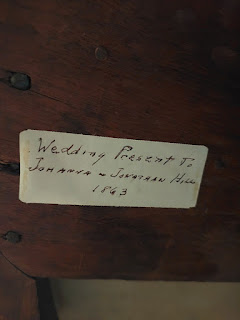 Wedding Present To
Johanna & Jonathan Hill
1863